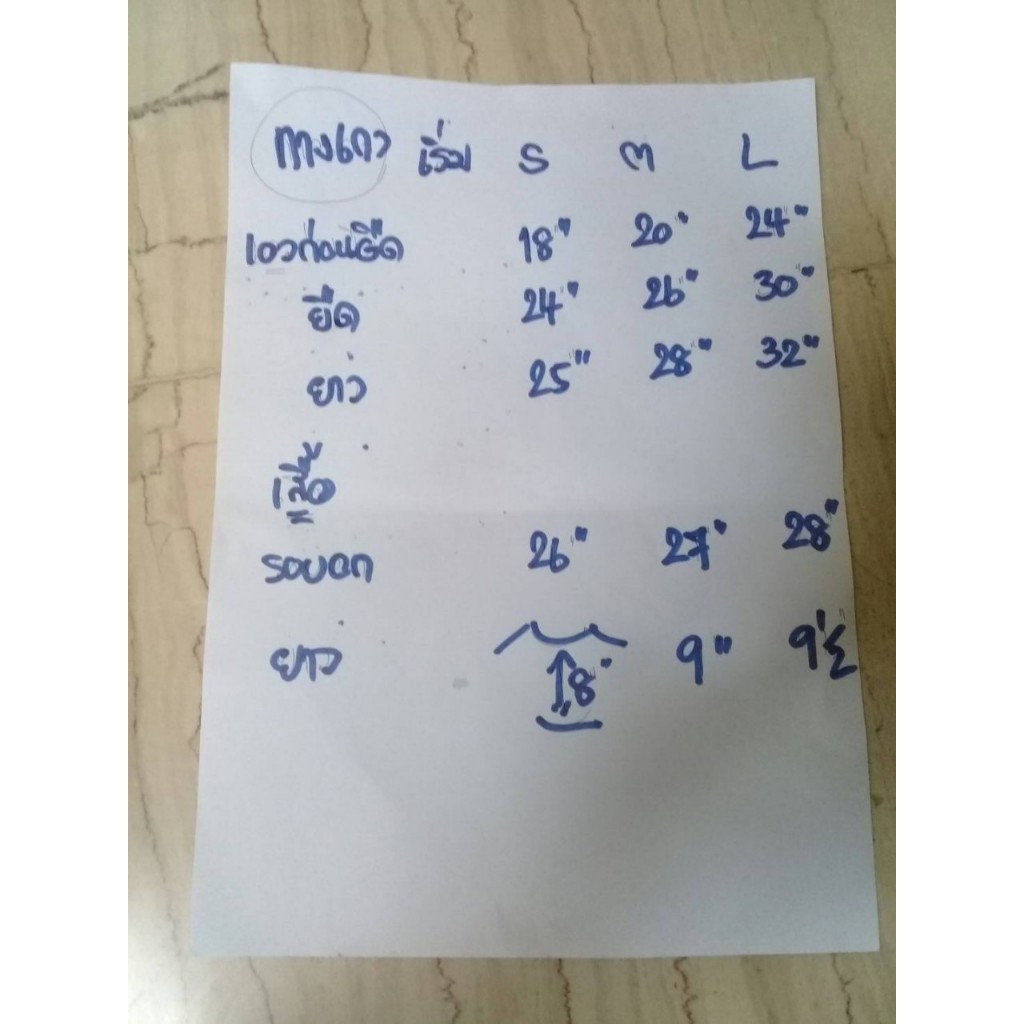 กางเกง เริ่ม S M L
เอวก่อนยืด 18" 20" 24"
ยืด 24" 26" 30"
ยาว 25" 28" 32"
เสื้อ
รอบอก 26" 27" 28"
ยาว 8" 9" 9 1/2